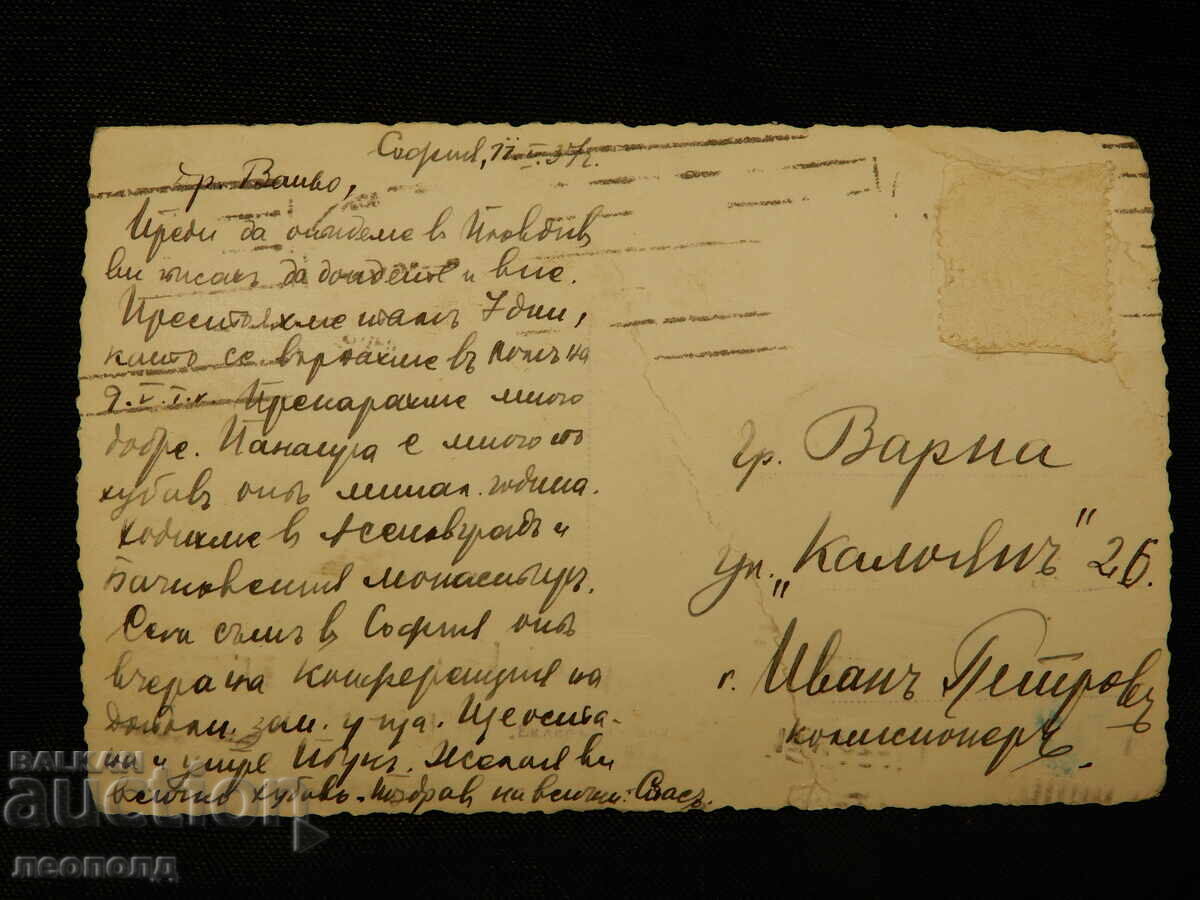 София, 11.V.37 г.
Др. Ванко,
Преди да отидеме в Пловдив
ви писахъ да дойдете и вие.
Престояхме тамъ 7 дни,
като се върнахме въ на
9.V.т.г. Прекарахме много
добре. Панаира е много по
хубавъ отъ минал. година.
Ходихме в Асеновградъ и
Бачковския монастиръ.
Сега съмъ в София отъ
вчера на конференция на
зам. Ще оста-
на и утре Желая ви
всичко хубаво. Поздрав на всички: Спасъ.
гр. Варна
ул. „Калоянъ" 26.
г. Иванъ Петровъ
комисионеръ
BALKAN
auction
леополд